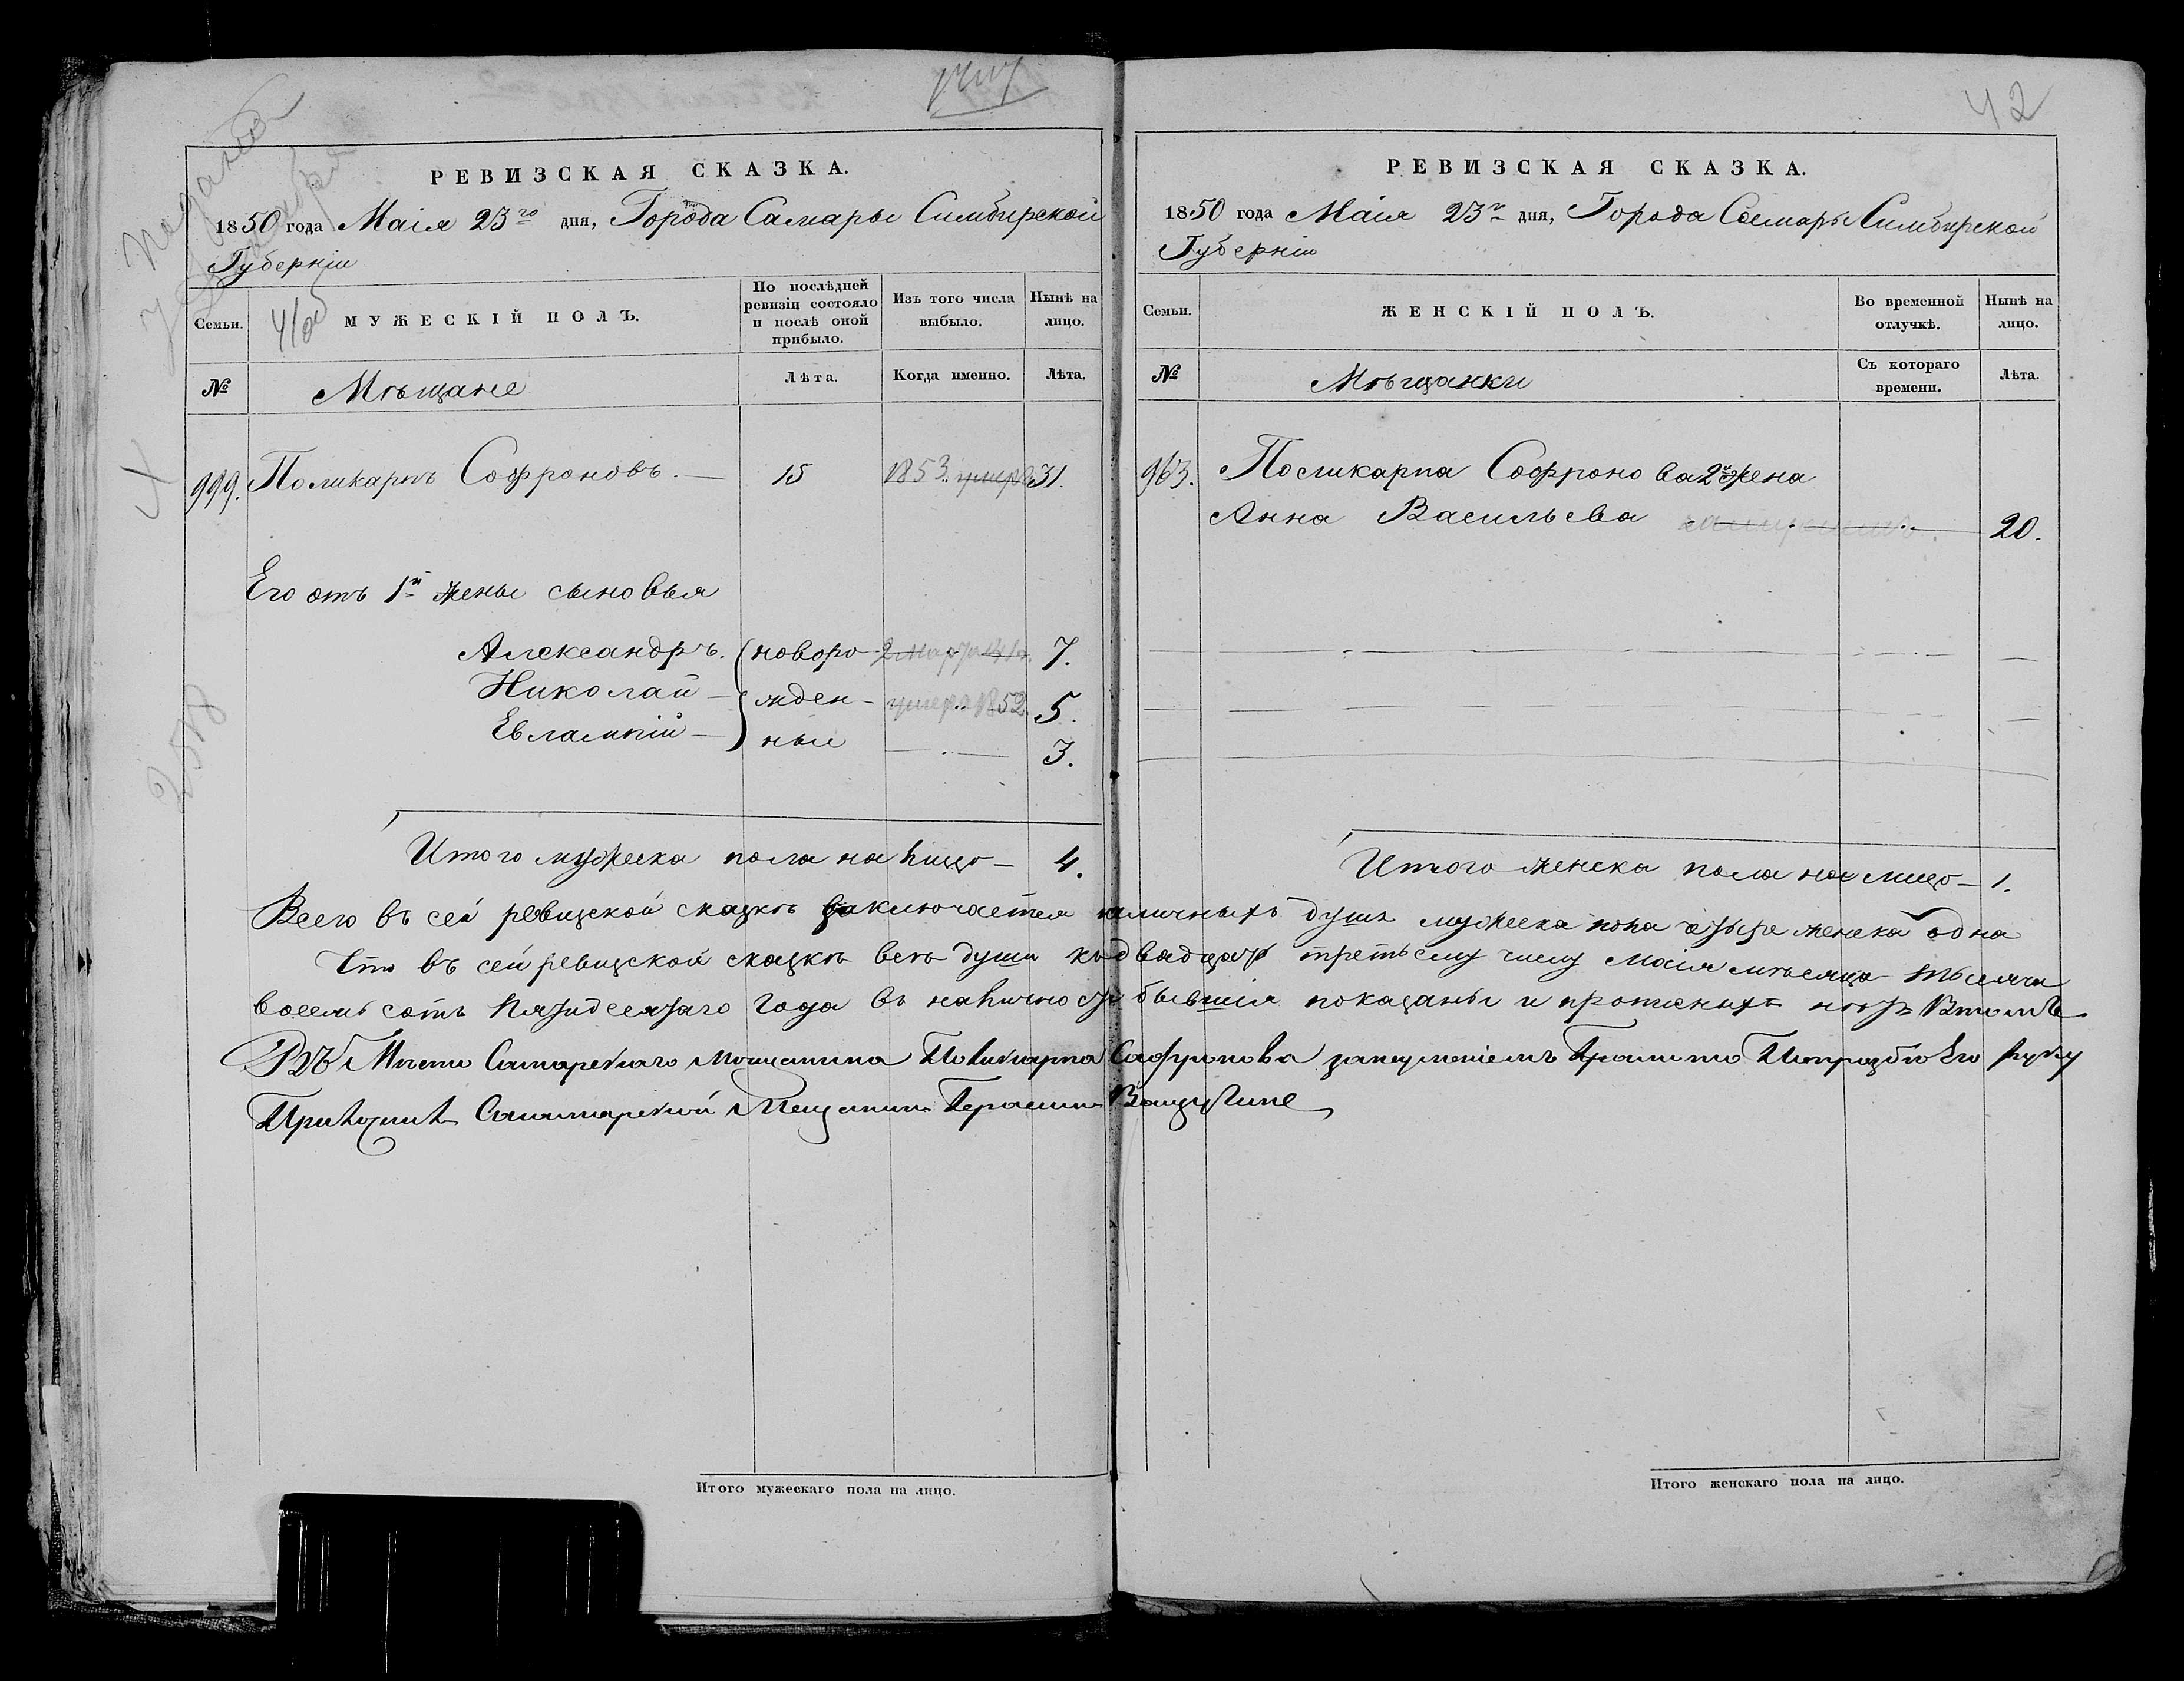 42
РЕВИЗСКАЯ СКАЗКА.
1850 года Маія 23го дня, Города Самары Симбирской
Губерніи
Семьи.
МУЖЕСКІЙ ПОЛЪ.
По послѣдней ревизіи состояло и послѣ оной прибыло.
Изъ того числа выбыло.
Нынѣ на лицо.
№
Мѣщане
Лѣта.
Когда именно.
Лѣта.
999. Поликарпъ Софроновъ. — 15 1853 умеръ 31.
Его отъ 1й жены сыновья
Александръ. новоро- 7.
Николай — жден- умеръ 1852 5.
Евлампій — ные 3.
2558
Итого мужеска пола на лицо — 4.
РЕВИЗСКАЯ СКАЗКА.
1850 года Маія 23го дня, Города Самары Симбирской
Губерніи
Семьи.
ЖЕНСКІЙ ПОЛЪ.
Во временной отлучкѣ.
Нынѣ на лицо.
№
Мѣщанки
Съ котораго времени.
Лѣта.
963. Поликарпа Софронова 2я жена
Анна Васильева 20.
Итого женска пола на лицо — 1.
Всего въ сей ревизской сказкѣ заключается наличныхъ душъ мужеска пола четыре женска одна
Что въ сей ревизской сказкѣ всѣ души къ двадцать третьему числу Маія мѣсяца тысяча
восемь сотъ пятидесятаго года въ наличности бывшія показаны и прописныхъ нѣтъ Втомъ
Въ Мѣсто Самарскаго Мещанина Поликарпа Сафронова Его руку
Приложилъ Самарской Мещанинъ Герасимъ
Итого мужескаго пола на лицо.
Итого женскаго пола на лицо.